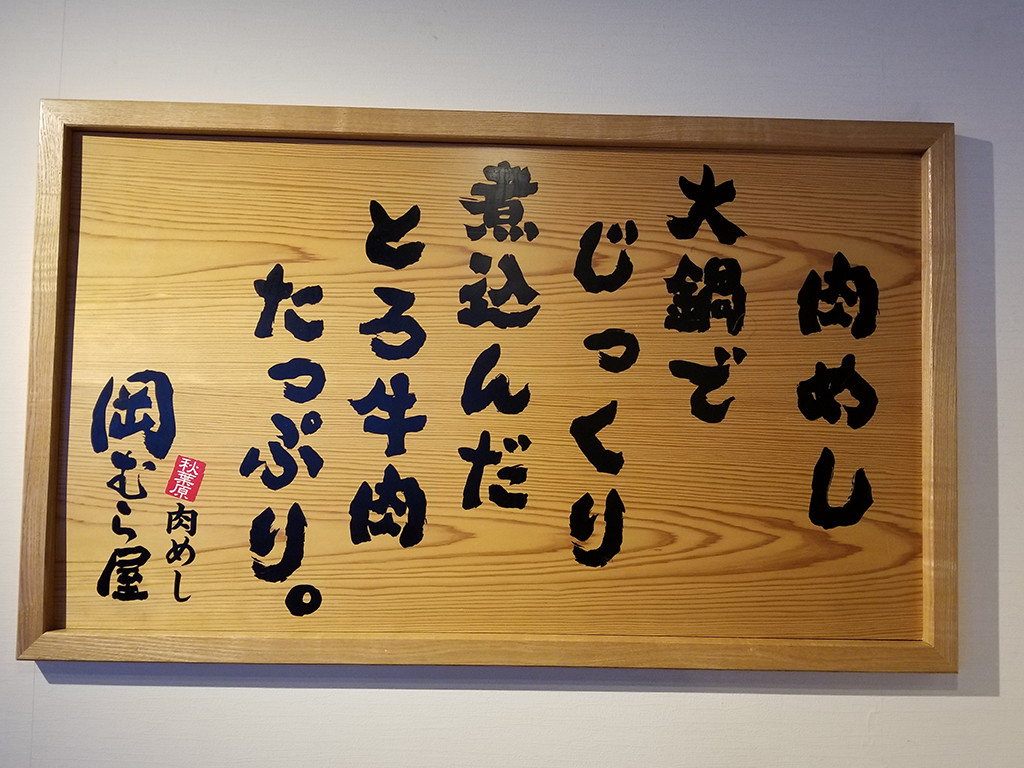 肉めし
大鍋で
じっくり
煮込んだ
とろ牛肉
たっぷり。
秋葉原
肉めし
岡むら屋